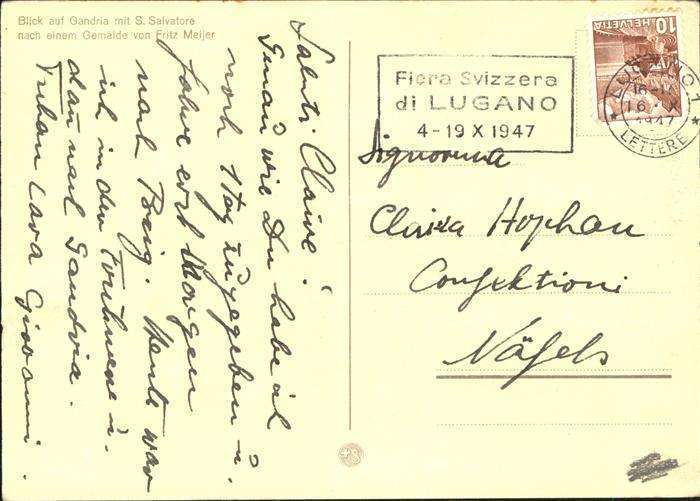 Blick auf Gandria mit S. Salvatore
nach einem Gemälde von Fritz Meijer
Saluti Claire!
Genau wie Du habe ich
noch 1 Tag zugegeben u.
fahre erst Morgen
nach Heute war
ich in der u.
dann nach Gandria.
Giovanni.
10
HELVETIA
Fiera Svizzera
di LUGANO
4-19 X 1947
LUGANO 1
16.X
1947
LETTERE
Signorina
Hophan
Näfels